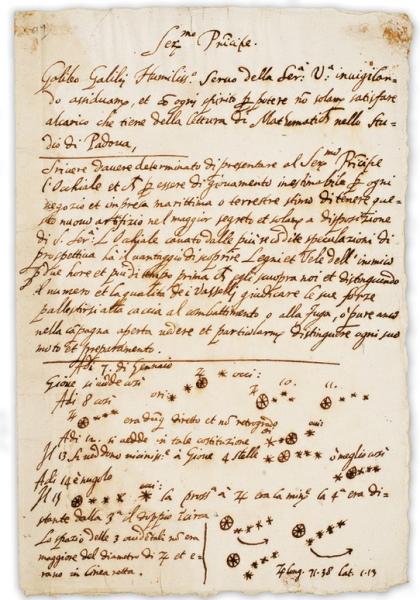 Ser.mo Principe.
Galileo Galilei Humiliss.o Servo della Ser.a V.a invigilan-
do assiduam.te, et cõ ogni spirito p potere nõ solam.te satisfare
alcarico che tiene della lettura di Mathematica nello Stu-
dio di Padova,
Scrivere davere determinato di presentare al Ser.mo Principe
l'Ochiale et p essere di giovamento inestimabile p ogni
negozio et impresa marittima o terrestre stimo di tenere que-
sto nuovo artifizio nel maggior segreto et solam.te a disposizione
di S. Ser.a L'Ochiale cavato dalle più recondite speculazioni di
prospettiva ha il vantaggio di scoprire Legni et Vele dell'inimico
p due hore et più di tempo prima ch egli scuopra noi et distinguendo
il numero et la qualità de i Vasselli giudicare le sue forze
pallestirsi alla caccia al combattimento o alla fuga, o pure anco
nella capagna aperta vedere et particolarm.te distinguere ogni suo
moto et preparamento.
Adi 7. di Gennaio
Giove si vedde così
Adi 8 così
era dũq diretto et nõ retrogrado
Adi 12. si vedde in tale costituzione
Il 13 si veddono vicinissi.e à Giove 4 stelle ò meglio così
Adi 14 è nugolo
Il 15 la pross.a à ♃ era la min.e la 4.a era di-
stante dalla 3.a il doppio circa
Lo spazio delle 3 occidẽtali nõ era
maggiore del diametro di ♃ et e-
rano in linea retta.
♃ long. 71.38 lat. 1.13